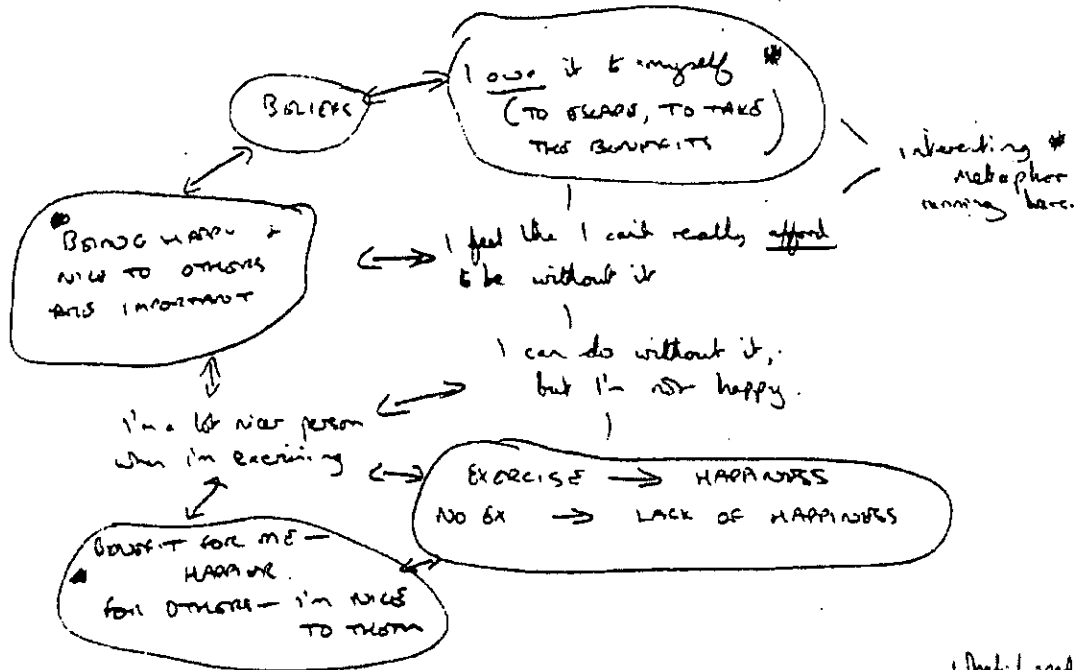 I owe it to myself *
(TO ESCAPE, TO TAKE
THE BENEFITS)
BELIEFS
interesting *
metaphor
running here.
BEING HAPPY +
NICE TO OTHERS
ARE IMPORTANT
I feel like I can't really afford
to be without it
I can do without it,
but I'm not happy.
I'm a lot nicer person
when i'm exercising
EXERCISE → HAPPINESS
NO EX → LACK OF HAPPINESS
BENEFIT FOR ME —
HAPPIER.
FOR OTHERS — I'M NICE
TO THEM